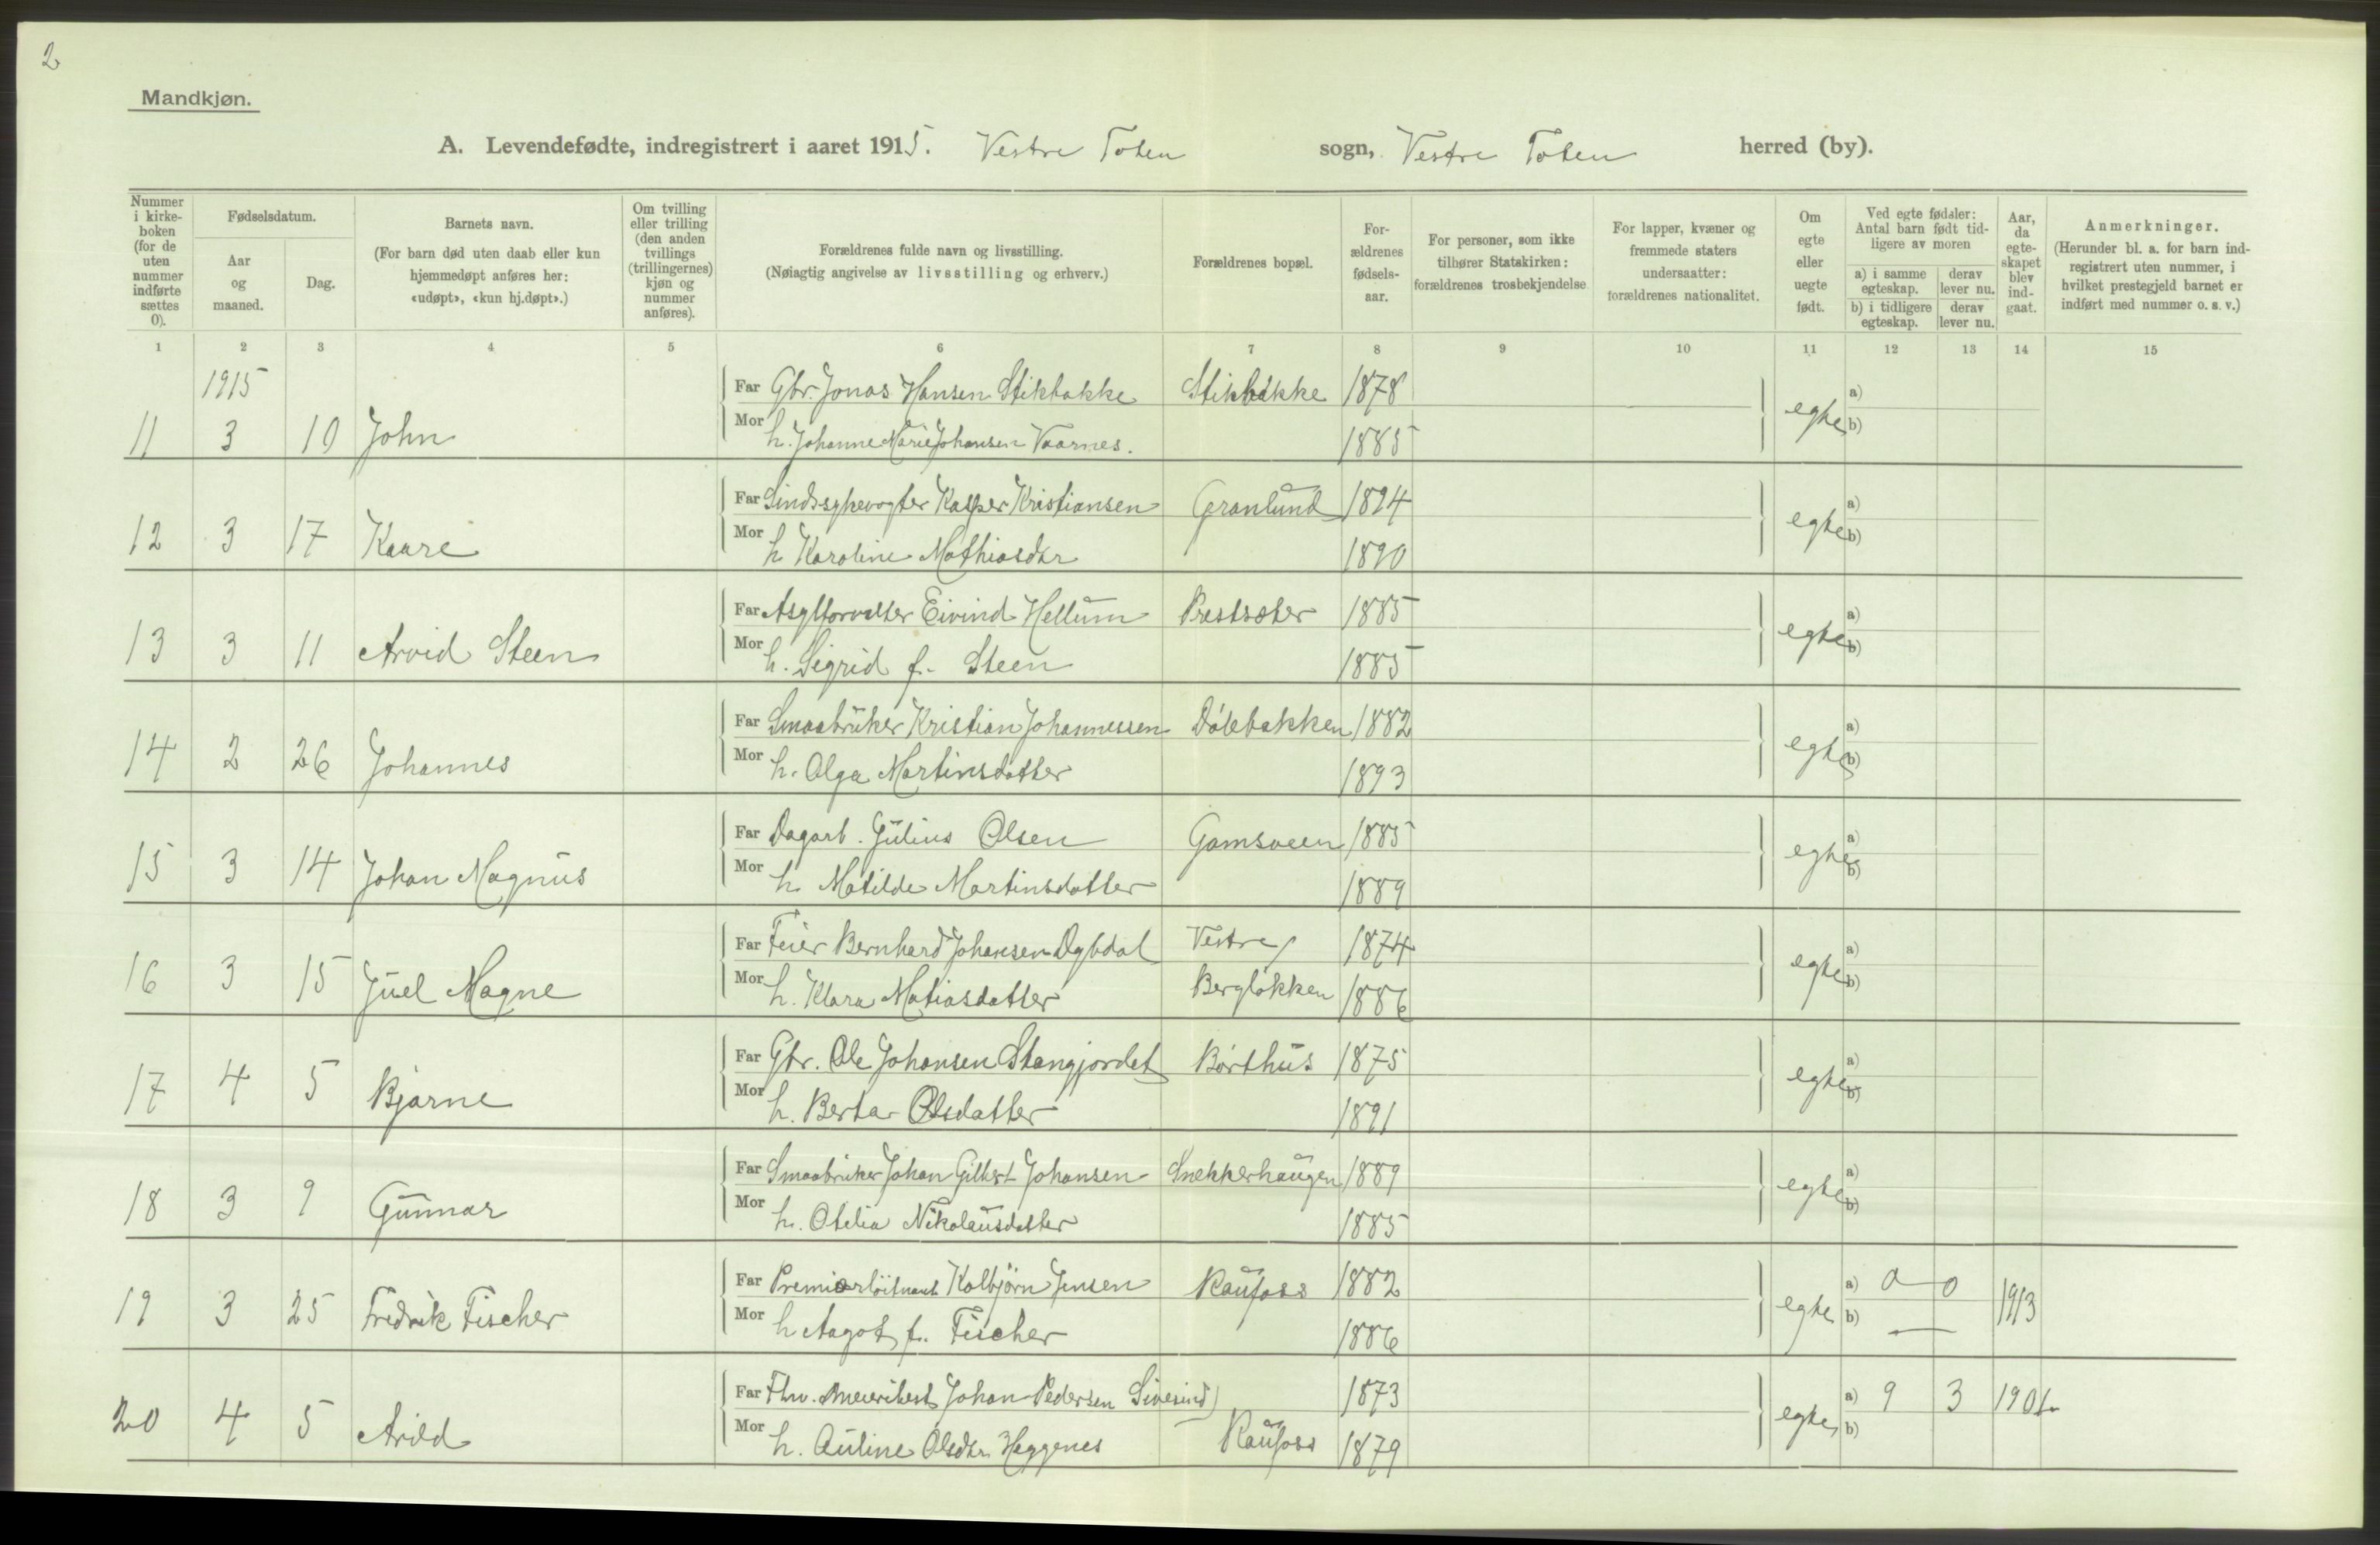 2
Mandkjøn.
A. Levendefødte, indregistrert i aaret 1915. Vestre Toten sogn, Vestre Toten herred (by).
Nummer i kirke-boken (for de uten nummer indførte sættes 0).
Fødselsdatum.
Aar og maaned.
Dag.
Barnets navn.
(For barn død uten daab eller kun hjemmedøpt anføres her: «udøpt», «kun hj.døpt».)
Om tvilling eller trilling (den anden tvillings (trillingernes) kjøn og nummer anføres).
Forældrenes fulde navn og livsstilling.
(Nøiagtig angivelse av livsstilling og erhverv.)
Forældrenes bopæl.
For-ældrenes fødsels-aar.
For personer, som ikke tilhører Statskirken: forældrenes trosbekjendelse
For lapper, kvæner og fremmede staters undersaatter: forældrenes nationalitet.
Om egte eller uegte født.
Ved egte fødsler: Antal barn født tid-ligere av moren
a) i samme egteskap.
derav lever nu.
b) i tidligere egteskap.
derav lever nu.
Aar, da egte-skapet blev ind-gaat.
Anmerkninger.
(Herunder bl. a. for barn ind-registrert uten nummer, i hvilket prestegjeld barnet er indført med nummer o. s. v.)
1 2 3 4 5 6 7 8 9 10 11 12 13 14 15
1915 Far Gbr. Jonas Hansen Stikbakke Stikbakke 1878 a)
11 3 10 John Mor h. Johanne Marie Johansen Vaarnes. 1885 egte b)
Far Sindssykevogter Kasper Kristiansen Granlund 1894 a)
12 3 17 Kaare Mor h. Karoline Mathiasdtr 1890 egte b)
Far Asylforvalter Eivind Hellum Prestsæter 1885 a)
13 3 11 Arvid Steen Mor h. Sigrid f. Steen 1885 egte b)
Far Smaabruker Kristian Johannessen Dølebakken 1882 a)
14 2 26 Johannes Mor h. Olga Martinsdatter 1893 egte b)
Far Dagarb. Julius Olsen Gamsveen 1885 a)
15 3 14 Johan Magnus Mor h. Matilde Martinsdatter 1889 egte b)
Far Feier Bernhard Johansen Dybdal Vestre 1874 a)
16 3 15 Juel Magne Mor h. Klara Matiasdatter Bergløkken 1886 egte b)
Far Gbr. Ole Johansen Stangjordet Børthus 1875 a)
17 4 5 Bjarne Mor h. Berta Olsdatter 1891 egte b)
Far Smaabruker Johan Gilbert Johansen Snekkerhaugen 1889 a)
18 3 9 Gunnar Mor h. Otelia Nikolausdatter 1885 egte b)
Far Premierløitnant Kolbjørn Jensen Raufoss 1882 a) 0 0
19 3 25 Fredrik Fischer Mor h Aagot f. Fischer 1886 egte b) — 1913
Far Fhv. meieribest Johan Pedersen Sivesind 1873 a) 9 3 1901
20 4 5 Arild Mor h. Auline Olsdtr Heggenes Raufoss 1879 egte b)